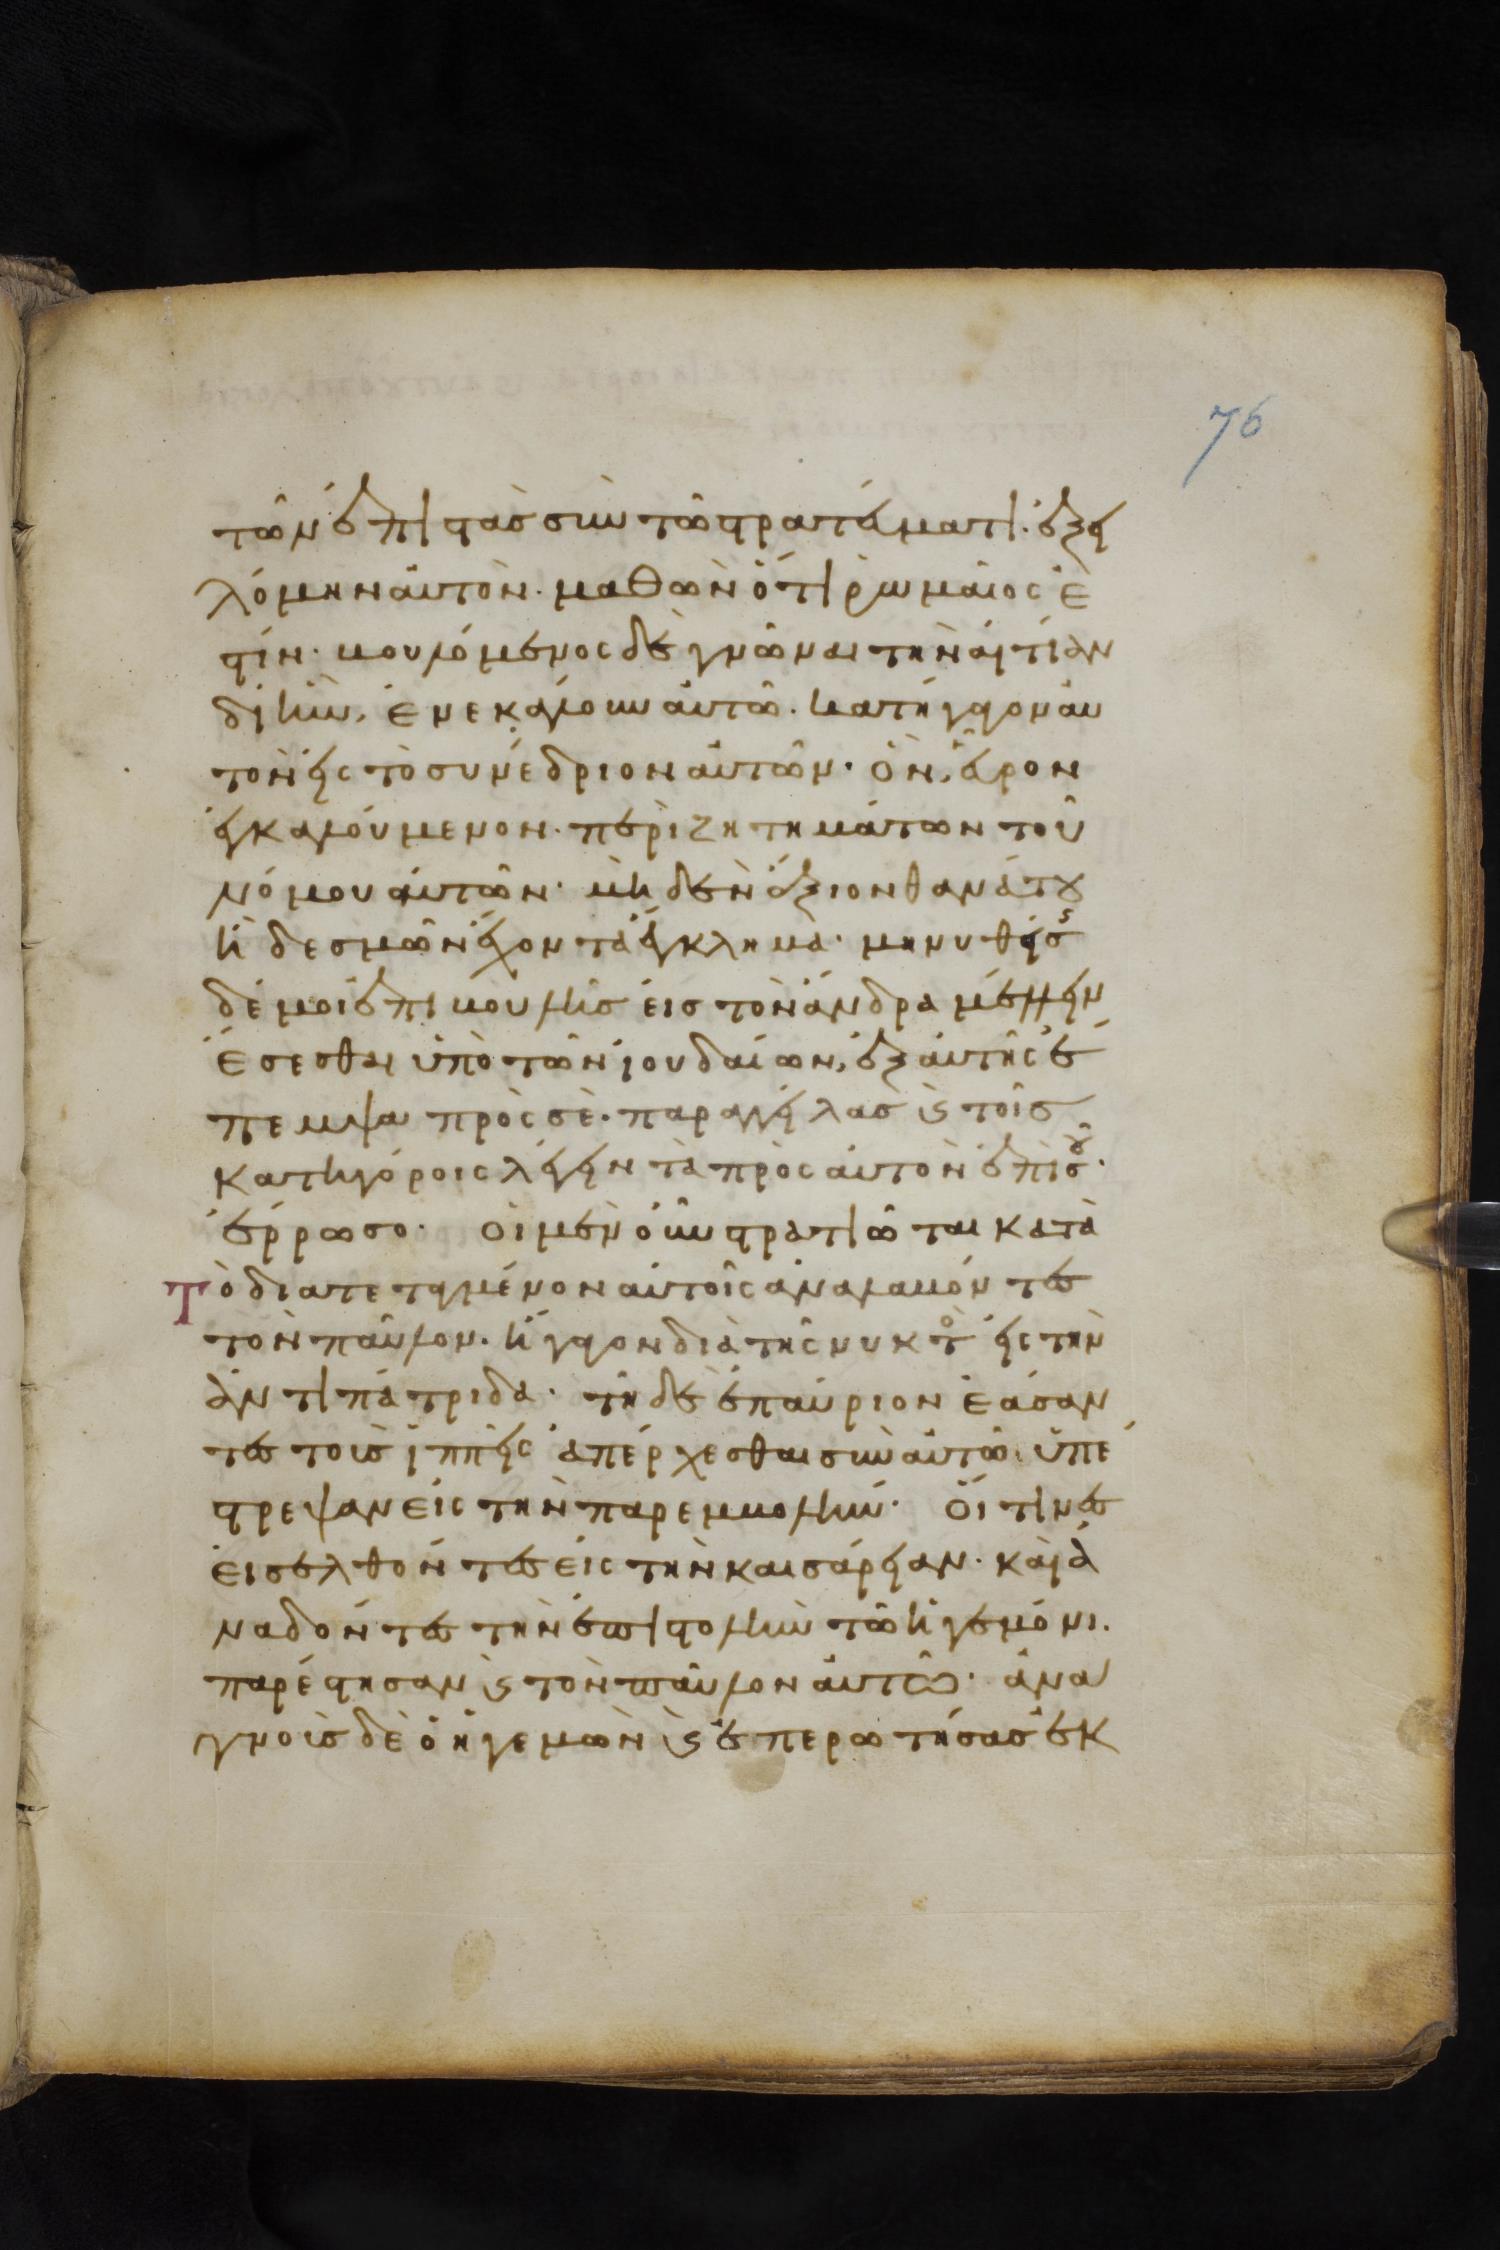 τῶν ἐπιστὰς σὺν τῶ στρατεύματι· ἐξει
λόμην αὐτὸν· μαθὼν ὅτι ῥωμαῖος ἐ
στίν· βουλόμενος δὲ γνῶναι τὴν αἰτίαν
δι ἣν, ἐνεκάλουν αὐτῶ· κατήγαγον αὐ
τὸν εἰς τὸ συνέδριον αὐτῶν· ὃν, εὗρον
ἐγκαλούμενον· περὶ ζητημάτων τοῦ
νόμου αὐτῶν· μὴδὲν ἄξιον θανάτου
ἢ δεσμῶν ἔχοντα ἔγκλημα· μηνυθείσης
δέ μοι ἐπιβουλῆς εἰς τὸν ἄνδρα μέλλειν
ἔσεσθαι ὑπὸ τῶν ἰουδαίων, ἐξαυτῆς ἔ
πεμψα πρὸς σὲ· παραγγείλας ϗ τοῖς
κατηγόροις λέγειν τὰ πρὸς αὐτὸν ἐπὶ σοῦ·
ἔρρωσο· οἱ μὲν οὖν στρατιῶται κατὰ
Τὸ διατεταγμένον αὐτοῖς ἀναλαβόντες
τὸν παῦλον· ἤγαγον διὰ τῆς νυκτὸς εἰς τὴν
ἀντιπάτριδα· τῆ δὲ ἐπαύριον ἐάσαν
τες τοὺς ἱππεῖς ἀπέρχεσθαι σὺν αὐτῶ· ὑπέ
στρεψαν εἰς τὴν παρεμβολήν· οἵτινες
εἰσελθόντες εἰς τὴν καισάρειαν· καὶ ἀ
ναδόντες τὴν ἐπιστολὴν τῶ ἡγεμόνι·
παρέστησαν ϗ τὸν παῦλον αὐτῶ· ἀνα
γνοὺς δὲ ὁ ἡγεμὼν ϗ ἐπερωτήσας ἐκ
76